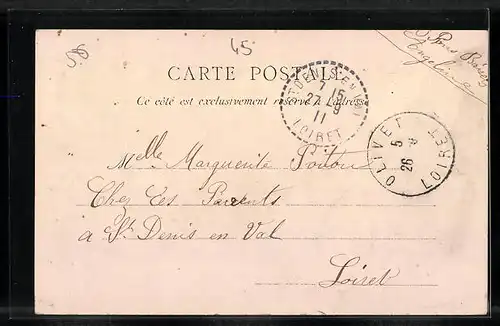 58
45
CARTE POSTALE
Ce côté est exclusivement réservé à l'adresse
ST DENIS-EN-VAL
7 15
27 9
11
LOIRET
OLIVET
5
26
LOIRET
Melle Marguerite Poitou
Chez Ses Parents
à St Denis en Val
Loiret